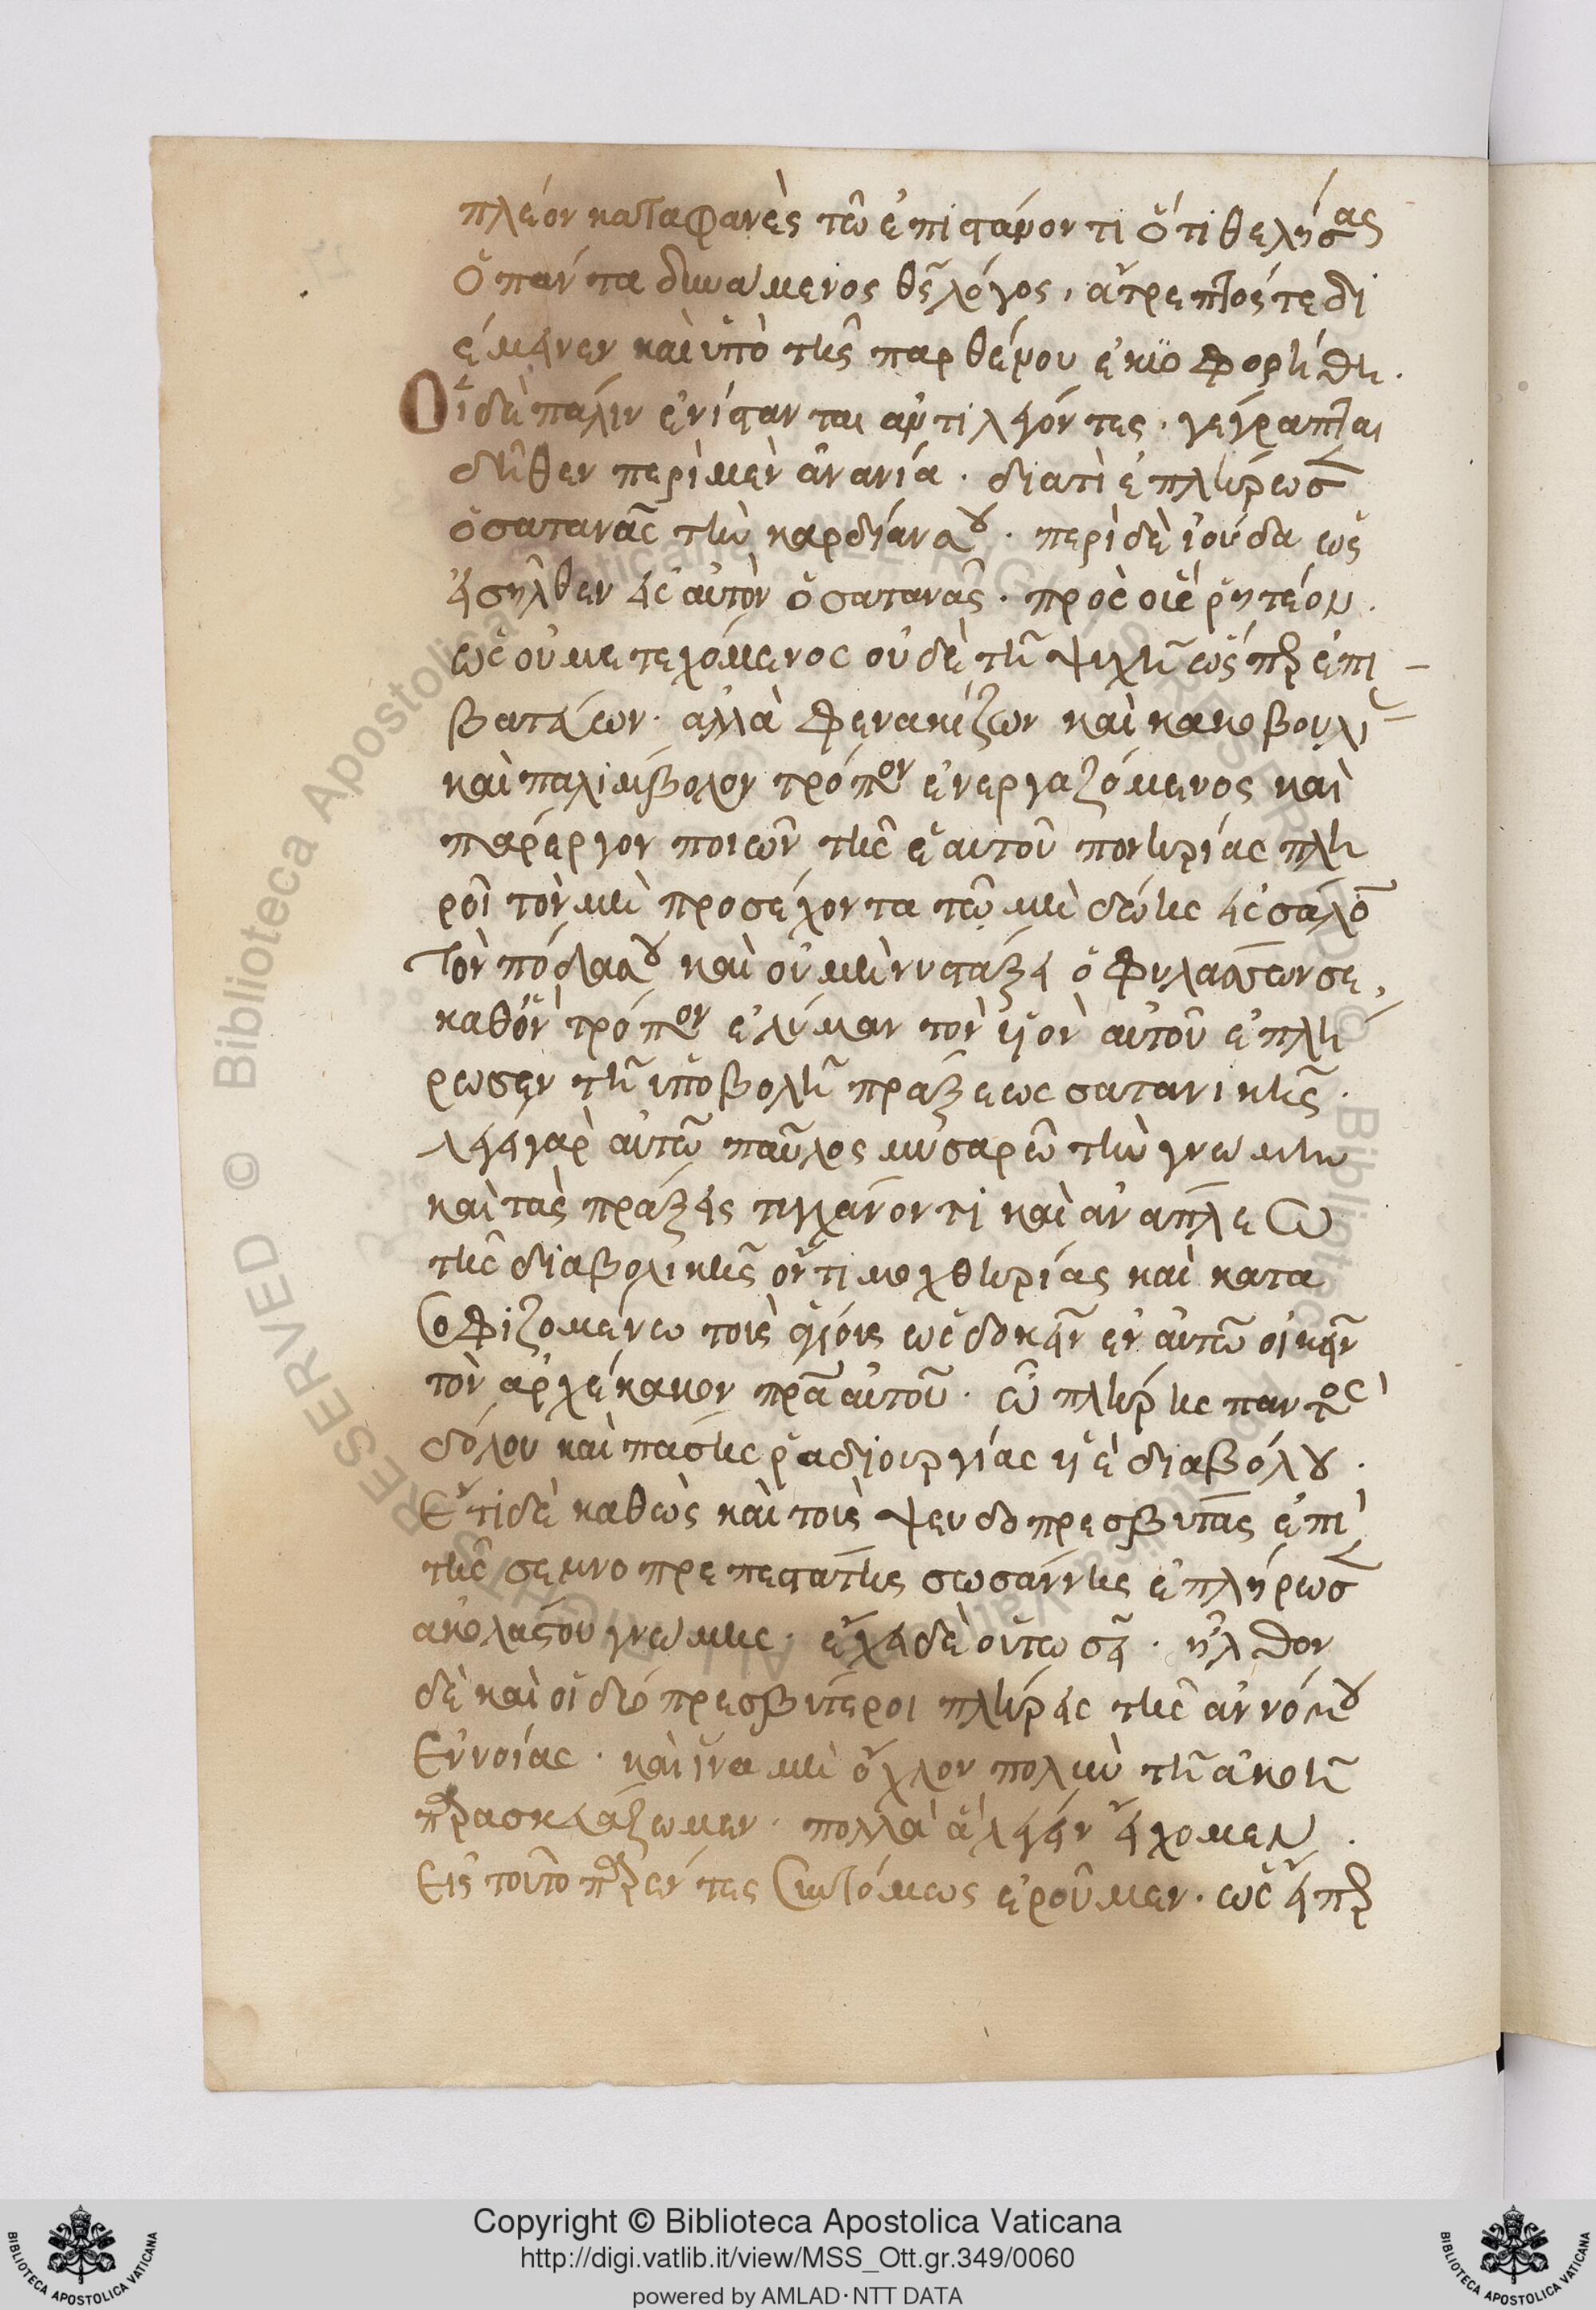 πλέον καταφανὲς τῶ ἐπιστάνοντι ὅτι θελήσας
ὁ πάντα δυνάμενος θς λόγος, ἄτρεπτός τε δι
έμεινεν καὶ ὑπὸ τῆς παρθένου ἐκυοφορήθη.
Οἱ δὲ πάλιν ἐνίστανται ἀντιλέγοντες. γέγραπται
δῆθεν περὶ μὲν ἀνανία. διατὶ ἐπλήρωσ
ὁ σατανᾶς τὴν καρδίαν σου. περὶ δὲ ἰούδα ὡς
εἰσῆλθεν εἰς αὐτὸν ὁ σατανᾶς. πρὸς οὓς ῥητέον.
ὡς οὐ μετεχόμενος οὐδὲ τῆ ψυχῆ ὥσπερ ἐπι
βατεύων. ἀλλὰ φενακίζων καὶ κακοβουλῆ
καὶ παλίμβολον τρόπον ἐνεργαζόμενος καὶ
πάρεργον ποιῶν τῆς ἑαυτοῦ πονηρίας πλη
ροῖ τὸν μὴ προσέχοντα τῶ μὴ δώης εἰς σάλον
τὸν πόδα σου καὶ οὐ μὴ νυστάξει ὁ φυλάσσων σε,
καθ' ὃν τρόπον ἐλύμαν τὸν υἱὸν αὐτοῦ ἐπλή
ρωσεν τῆ ὑποβολῆ πράξεως σατανικῆς.
λέγει γὰρ αὐτῶ παῦλος μυσαρῶ τὴν γνώμην
καὶ τὰς πράξεις τυγχάνοντι καὶ ἀνάπλεω
τῆς διαβολικῆς ὄντι μοχθηρίας καὶ κατα
σοφιζομένω τοὺς ὡς δοκεῖν ἐν αὐτῶ οἰκεῖν
τὸν ἀρχέκακον πρα αὐτοῦ. ὦ πλήρης παντὸς
δόλου καὶ πάσης ῥαδιουργίας υἱὲ διαβόλου.
Ἔτι δὲ καθὼς καὶ τοὺς ψευδοπρεσβύτας ἐπὶ
τῆς σεμνοπρεπεστάτης σωσάννης ἐπλήρωσ
ἀκολάστου γνώμης. ἔχει δὲ οὕτωσ. ἦλθον
δὲ καὶ οἱ δύο πρεσβύτεροι πλήρεις τῆς ἀννόμου
Ἐννοίας. καὶ ἵνα μὴ ὄχλον πολὺν τῆ ἀκοῆ
παρασκευάζωμεν. πολλὰ ἃ λέγειν ἔχομεν.
Εἰς τοῦτο παρέντες συντόμως ἐροῦμεν. ὡς εἴπερ
Copyright © Biblioteca Apostolica Vaticana
http://digi.vatlib.it/view/MSS_Ott.gr.349/0060
powered by AMLAD·NTT DATA